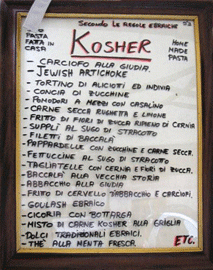 SECONDO LE REGOLE EBRAICHE
PASTA FATTA IN CASA
KOSHER
HOME MADE PASTA
- CARCIOFO ALLA GIUDIA
- JEWISH ARTICHOKE
- TORTINO DI ALICIOTTI ED INDIVIA
- CONCIA DI ZUCCHINE
- POMODORI A MEZZO CON CASALINO
- CARNE SECCA RUGHETTA E LIMONE
- FRITTO DI FIORI DI ZUCCA RIPIENO DI CERNIA
- SUPPLÌ AL SUGO DI STRACOTTO
- FILETTI DI BACCALÀ
- PAPPARDELLE CON ZUCCHINE E CARNE SECCA
- FETTUCCINE AL SUGO DI STRACOTTO
- TAGLIATELLE CON CERNIA E FIORI DI ZUCCA
- BACCALÀ ALLA VECCHIA STORIA
- ABBACCHIO ALLA GIUDIA
- FRITTO DI CERVELLO D'ABBACCHIO E CARCIOFI
- GOULASH EBRAICO
- CICORIA CON BOTTARGA
- MISTO DI CARNE KOSHER ALLA GRIGLIA
- DOLCI TRADIZIONALI EBRAICI
- THE ALLA MENTA FRESCA
ETC.